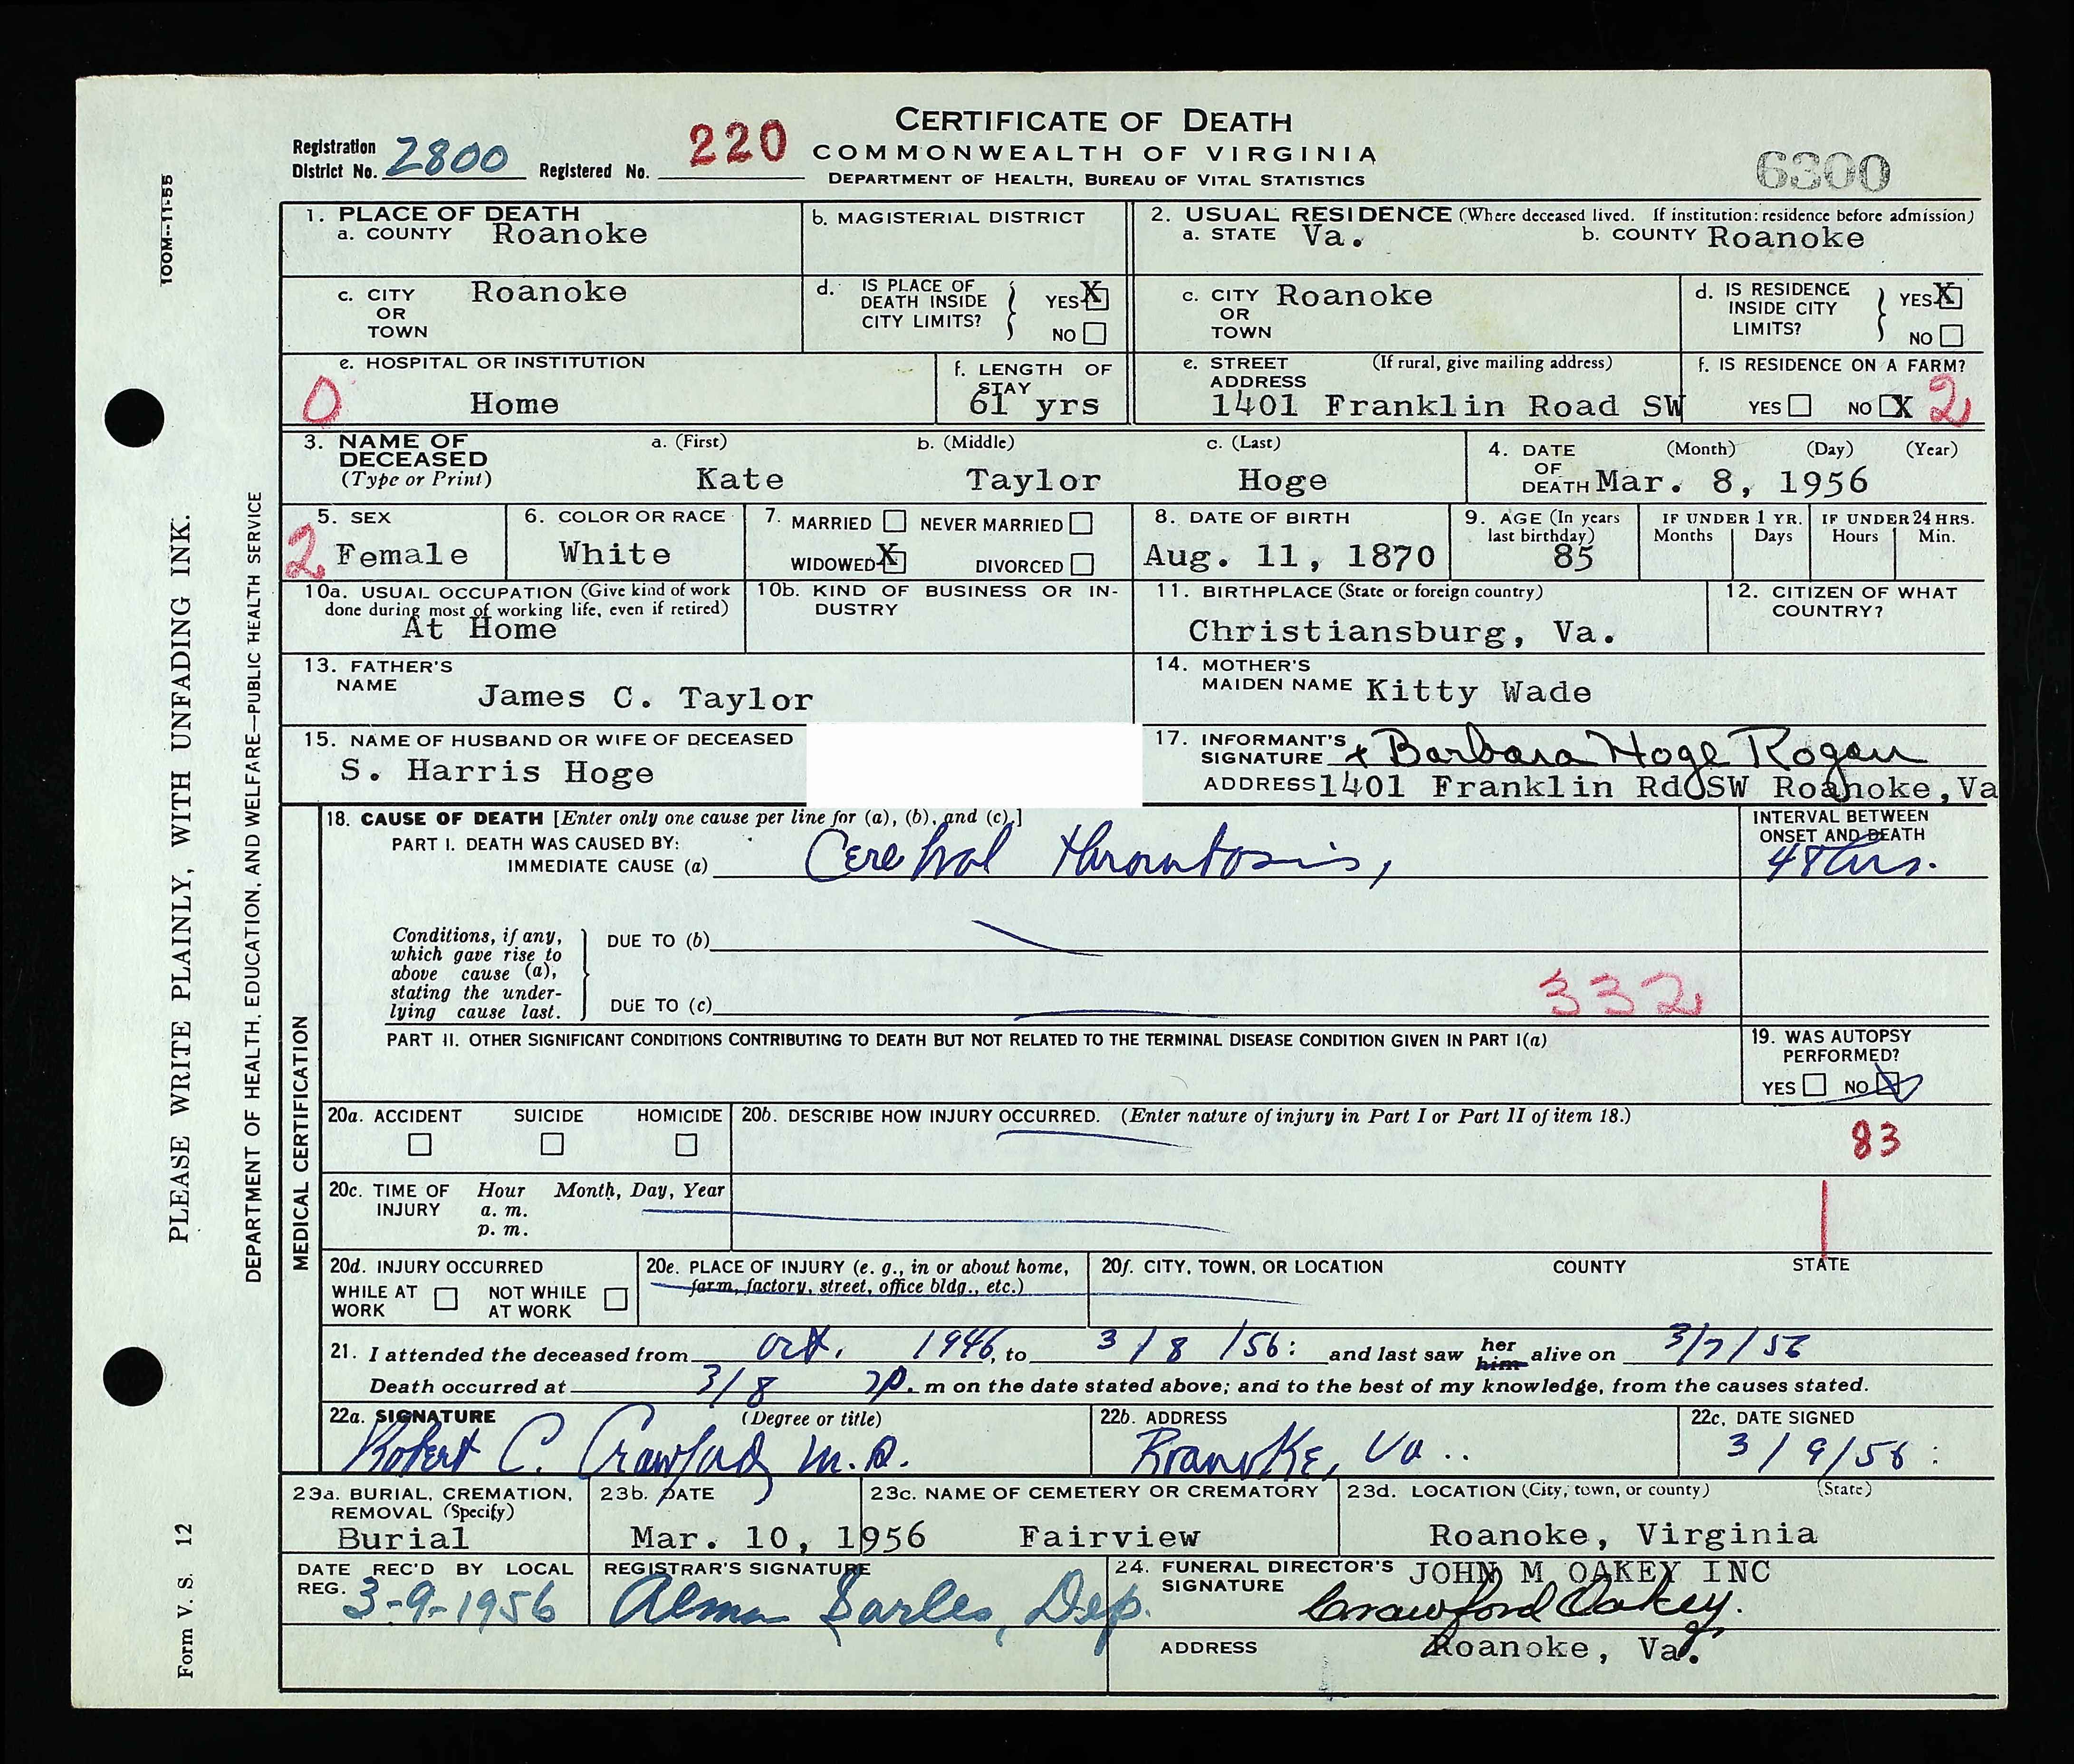 CERTIFICATE OF DEATH
COMMONWEALTH OF VIRGINIA
DEPARTMENT OF HEALTH, BUREAU OF VITAL STATISTICS
Registration District No. 2800 Registered No. 220
6300
100M--11-55
PLEASE WRITE PLAINLY, WITH UNFADING INK.
DEPARTMENT OF HEALTH, EDUCATION, AND WELFARE—PUBLIC HEALTH SERVICE
Form V. S. 12
1. PLACE OF DEATH
a. COUNTY Roanoke
b. MAGISTERIAL DISTRICT
2. USUAL RESIDENCE (Where deceased lived. If institution: residence before admission)
a. STATE Va. b. COUNTY Roanoke
c. CITY OR TOWN Roanoke
d. IS PLACE OF DEATH INSIDE CITY LIMITS? YES X NO
c. CITY OR TOWN Roanoke
d. IS RESIDENCE INSIDE CITY LIMITS? YES X NO
e. HOSPITAL OR INSTITUTION
0 Home
f. LENGTH OF STAY
61 yrs
e. STREET ADDRESS (If rural, give mailing address)
1401 Franklin Road SW
f. IS RESIDENCE ON A FARM?
YES NO X 2
3. NAME OF DECEASED (Type or Print)
a. (First) b. (Middle) c. (Last)
Kate Taylor Hoge
4. DATE OF DEATH (Month) (Day) (Year)
Mar. 8, 1956
5. SEX
2 Female
6. COLOR OR RACE
White
7. MARRIED NEVER MARRIED
WIDOWED X DIVORCED
8. DATE OF BIRTH
Aug. 11, 1870
9. AGE (In years last birthday)
85
IF UNDER 1 YR.
Months Days
IF UNDER 24 HRS.
Hours Min.
10a. USUAL OCCUPATION (Give kind of work done during most of working life, even if retired)
At Home
10b. KIND OF BUSINESS OR INDUSTRY
11. BIRTHPLACE (State or foreign country)
Christiansburg, Va.
12. CITIZEN OF WHAT COUNTRY?
13. FATHER'S NAME
James C. Taylor
14. MOTHER'S MAIDEN NAME Kitty Wade
15. NAME OF HUSBAND OR WIFE OF DECEASED
S. Harris Hoge
17. INFORMANT'S SIGNATURE x Barbara Hoge Rogan
ADDRESS 1401 Franklin Rd SW Roanoke, Va
MEDICAL CERTIFICATION
18. CAUSE OF DEATH [Enter only one cause per line for (a), (b), and (c).]
PART I. DEATH WAS CAUSED BY:
IMMEDIATE CAUSE (a) Cerebral thrombosis,
INTERVAL BETWEEN ONSET AND DEATH
48 hrs.
Conditions, if any, which gave rise to above cause (a), stating the underlying cause last.
DUE TO (b)
DUE TO (c)
332
PART II. OTHER SIGNIFICANT CONDITIONS CONTRIBUTING TO DEATH BUT NOT RELATED TO THE TERMINAL DISEASE CONDITION GIVEN IN PART I(a)
19. WAS AUTOPSY PERFORMED?
YES NO X
20a. ACCIDENT SUICIDE HOMICIDE
20b. DESCRIBE HOW INJURY OCCURRED. (Enter nature of injury in Part I or Part II of item 18.)
83
20c. TIME OF INJURY Hour Month, Day, Year
a. m.
p. m.
1
20d. INJURY OCCURRED
WHILE AT WORK NOT WHILE AT WORK
20e. PLACE OF INJURY (e. g., in or about home, farm, factory, street, office bldg., etc.)
20f. CITY, TOWN, OR LOCATION COUNTY STATE
21. I attended the deceased from Oct. 1946, to 3/8/56: and last saw her him alive on 3/7/56
Death occurred at 3/8 7p. m on the date stated above; and to the best of my knowledge, from the causes stated.
22a. SIGNATURE (Degree or title)
Robert C. Crawford M.D.
22b. ADDRESS
Roanoke, Va..
22c. DATE SIGNED
3/9/56:
23a. BURIAL, CREMATION, REMOVAL (Specify)
Burial
23b. DATE
Mar. 10, 1956
23c. NAME OF CEMETERY OR CREMATORY
Fairview
23d. LOCATION (City, town, or county) (State)
Roanoke, Virginia
DATE REC'D BY LOCAL REG. 3-9-1956
REGISTRAR'S SIGNATURE
Alma Sarles, Dep.
24. FUNERAL DIRECTOR'S SIGNATURE JOHN M OAKEY INC
Crawford Oakey Jr.
ADDRESS Roanoke, Va.